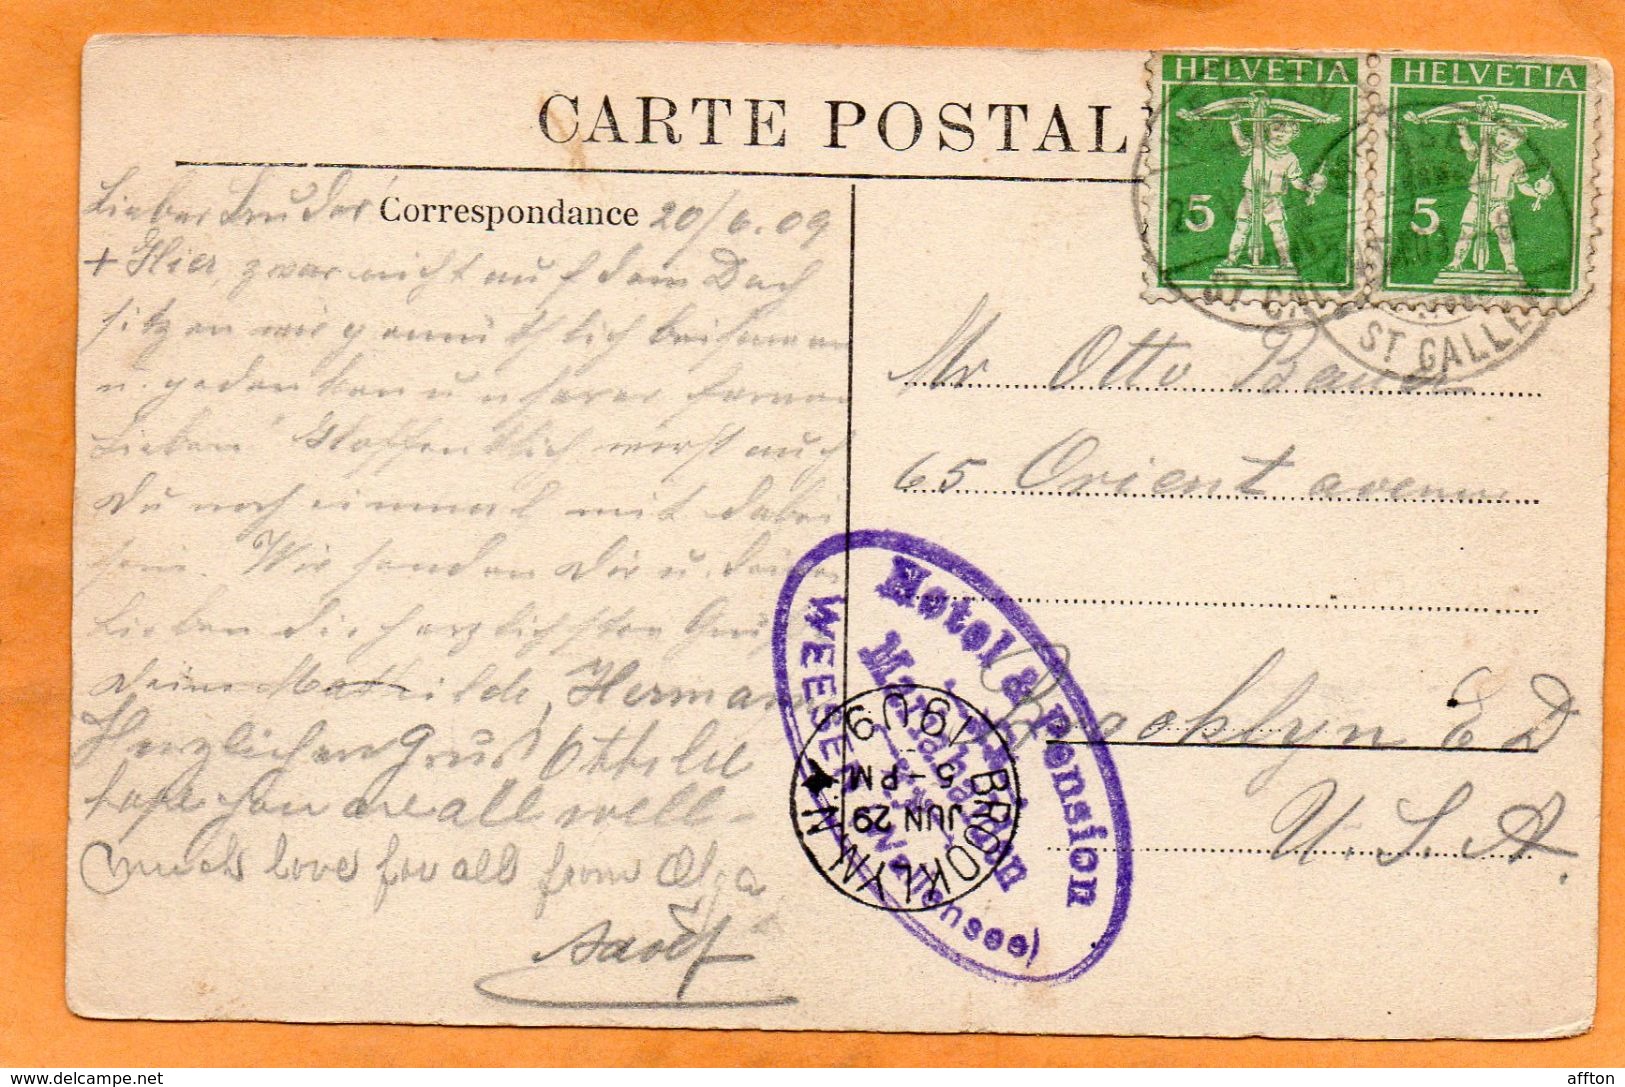 CARTE POSTALE
HELVETIA
5
HELVETIA
5
ST GALLEN
ST GALLEN
Correspondance
Lieber Bruder 20/6.09
+ Hier, zwar nicht auf dem Dach
sitzen wir gemütlich beisammen
u. gedenken unserer fernen
Lieben! Hoffentlich wirst auch
Du noch einmal mit dabei
sein. Wir senden Dir u. Deinen
Lieben die herzlichsten Grüße
Deine Mathilde, Hermann
Herzlichen Gruß Ottilie
hope you are all well-
much love for all from Olga
Adolf
Mr Otto Bauer
65 Orient avenue
Brooklyn E D
U.S.A.
Hotel & Pension
Mariahalden
WEESEN (Wallensee)
BROOKLYN N.Y.
JUN 29
5-PM
1909
affton